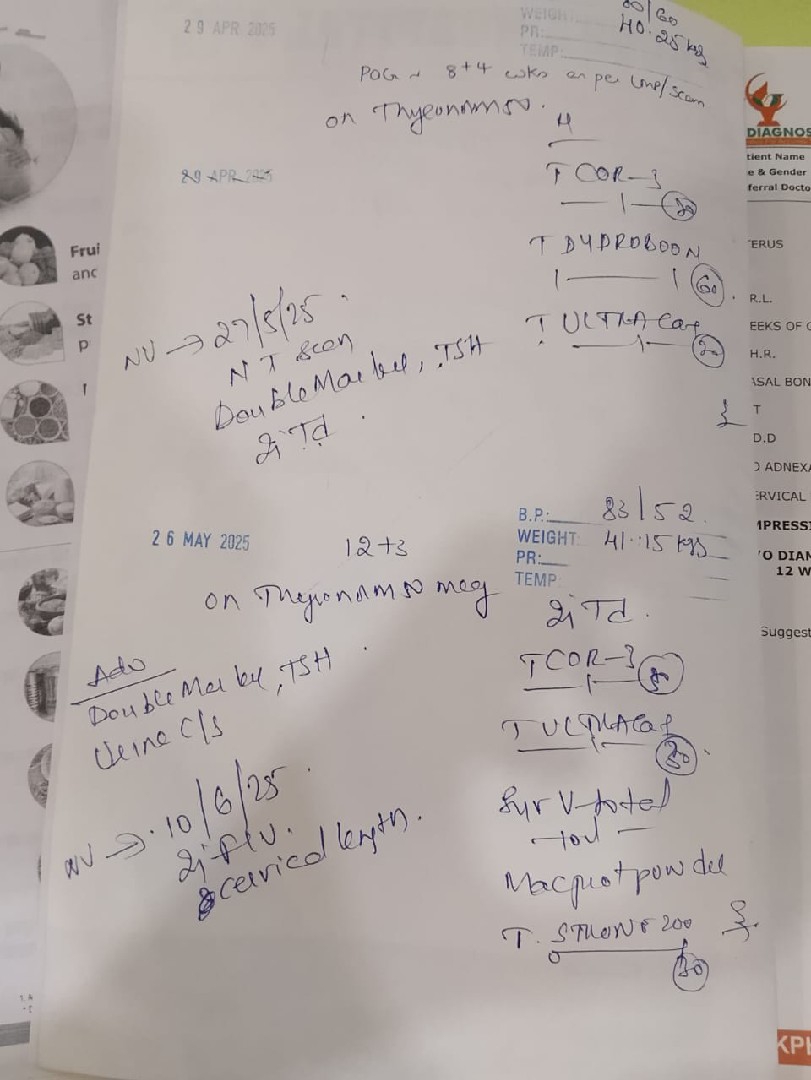 29 APR 2025
WEIGHT
40.25 kg
PR:
TEMP:
POG ~ 8+4 wks as per LMP/scan
on Thyronorm 50.
29 APR 2025
T COR-3
30
T DYDROBOON
60
T ULTRA Cap
30
NV → 27/5/25.
NT scan
Double Marker, TSH
Inj Td.
26 MAY 2025
12+3
B.P.: 83/52
WEIGHT: 41.15 kgs
PR:
TEMP
on Thyronorm 50 mcg
Inj Td.
T COR-3
30
T ULTRA Cap
30
Syr V-total
Macprot powder
T. STRONE 200
30
Adv
Double Marker, TSH
Urine C/S
NV → 10/6/25.
Inj FLV.
cervical length.
Frui
anc
St
p
DIAGNOS
tient Name
e & Gender
ferral Docto
ERUS
R.L.
EEKS OF G
H.R.
ASAL BON
T
D.D
ADNEXA
ERVICAL
MPRESS
O DIAN
12 W
Suggest
KPH